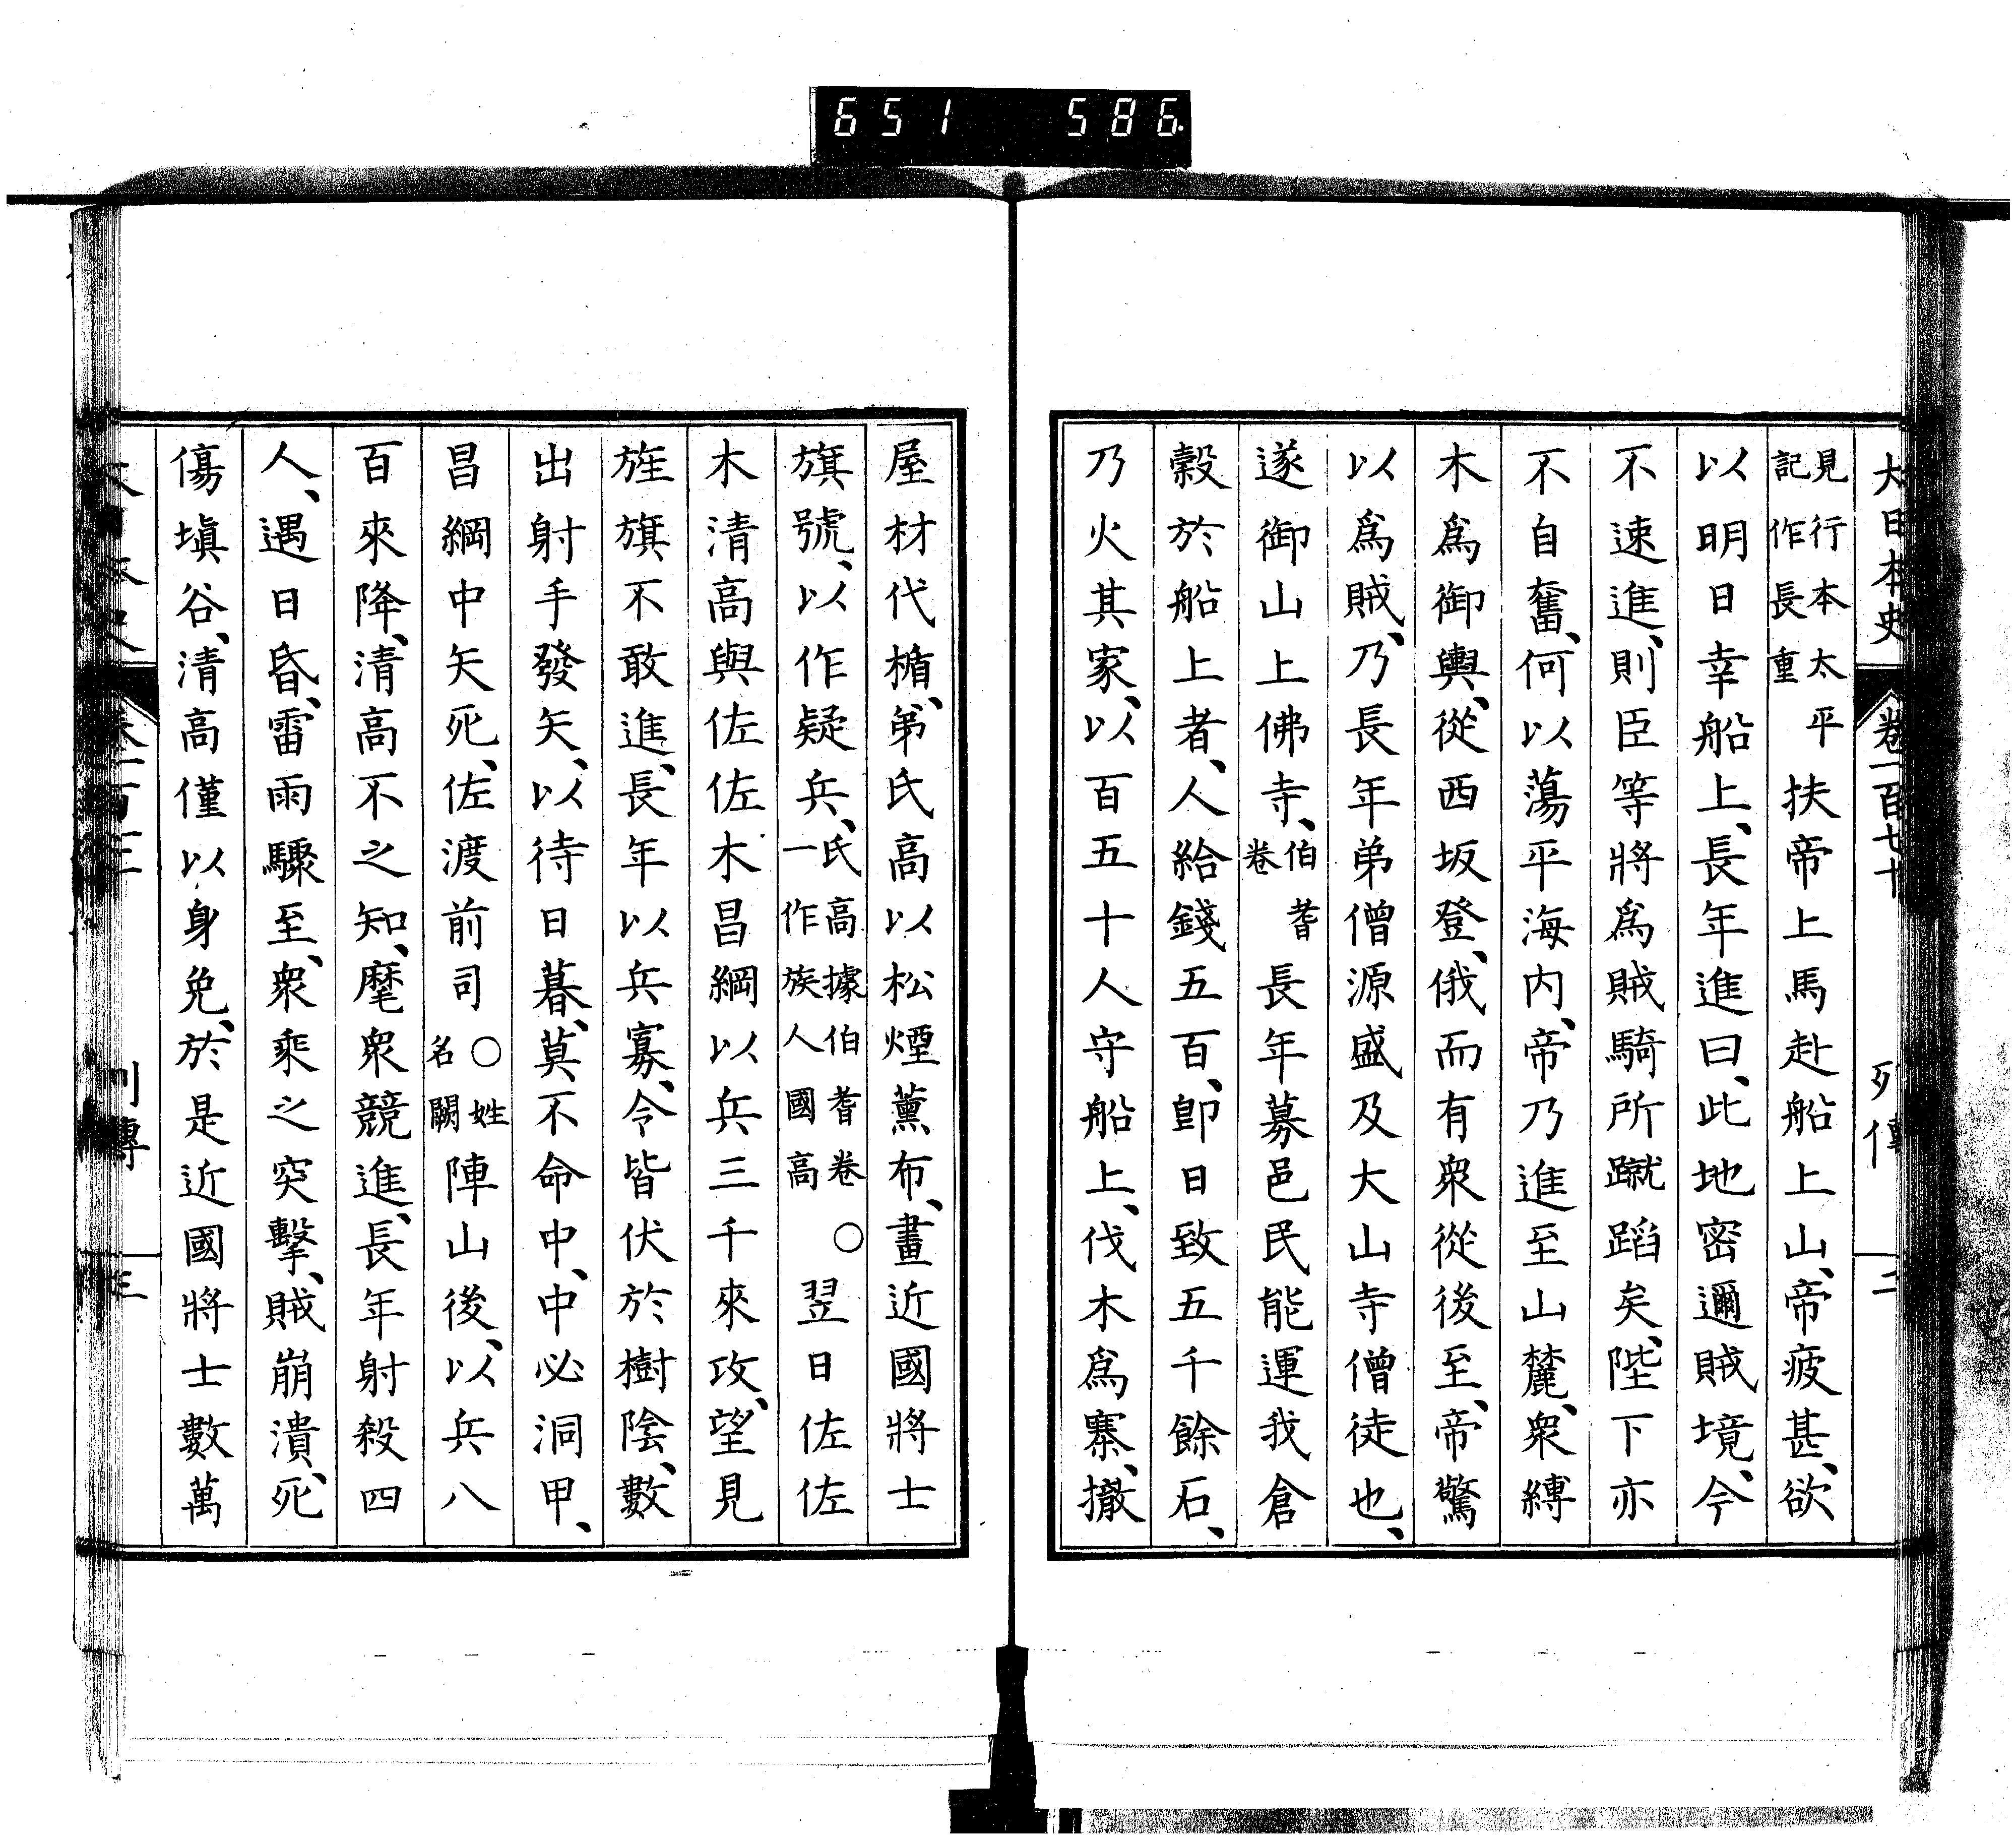 651 586
大日本史 卷一百七十 列傳 二
見行本太平記作長重扶帝上馬赴船上山、帝疲甚、欲
以明日幸船上、長年進曰、此地密邇賊境、今
不速進、則臣等將爲賊騎所蹴蹈矣、陛下亦
不自奮、何以蕩平海内、帝乃進至山麓、衆縛
木爲御輿、從西坂登、俄而有衆從後至、帝驚
以爲賊、乃長年弟僧源盛及大山寺僧徒也、
遂御山上佛寺、伯耆卷長年募邑民能運我倉
穀於船上者、人給錢五百、卽日致五千餘石、
乃火其家、以百五十人守船上、伐木爲寨、撤
屋材代楯、弟氏高以松煙薰布、畫近國將士
旗號、以作疑兵、氏高據伯耆卷○一作族人國高翌日佐佐
木清高與佐佐木昌綱以兵三千來攻、望見
旌旗不敢進、長年以兵寡、令皆伏於樹陰、數
出射手發矢、以待日暮、莫不命中、中必洞甲、
昌綱中矢死、佐渡前司○姓名闕陣山後、以兵八
百來降、清高不之知、麾衆競進、長年射殺四
人、遇日昏、雷雨驟至、衆乘之突擊、賊崩潰、死
傷塡谷、清高僅以身免、於是近國將士數萬
列傳 三